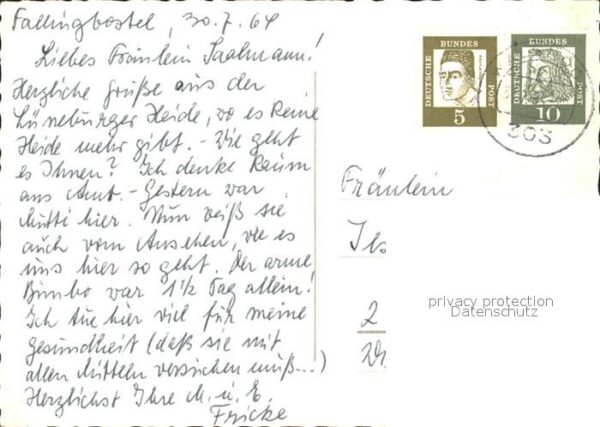 Fallingbostel, 30.7.64
Liebes Fräulein Saalmann!
Herzliche Grüße aus der
Lüneburger Heide, wo es keine
Heide mehr gibt. - Wie geht
es Ihnen? Ich denke kaum
ans Amt. - Gestern war
Mutti hier. Nun weiß sie
auch vom Ansehen, wie es
uns hier so geht. Der arme
Bimbo war 1½ Tag allein!
Ich tue hier viel für meine
Gesundheit (daß sie mit
allen Mitteln versichen muß...)
Herzlichst Ihre M. u. E.
Fricke
DEUTSCHE BUNDES POST
5
DEUTSCHE BUNDES POST
10
303
Fräulein
Ils
2
privacy protection
Datenschutz